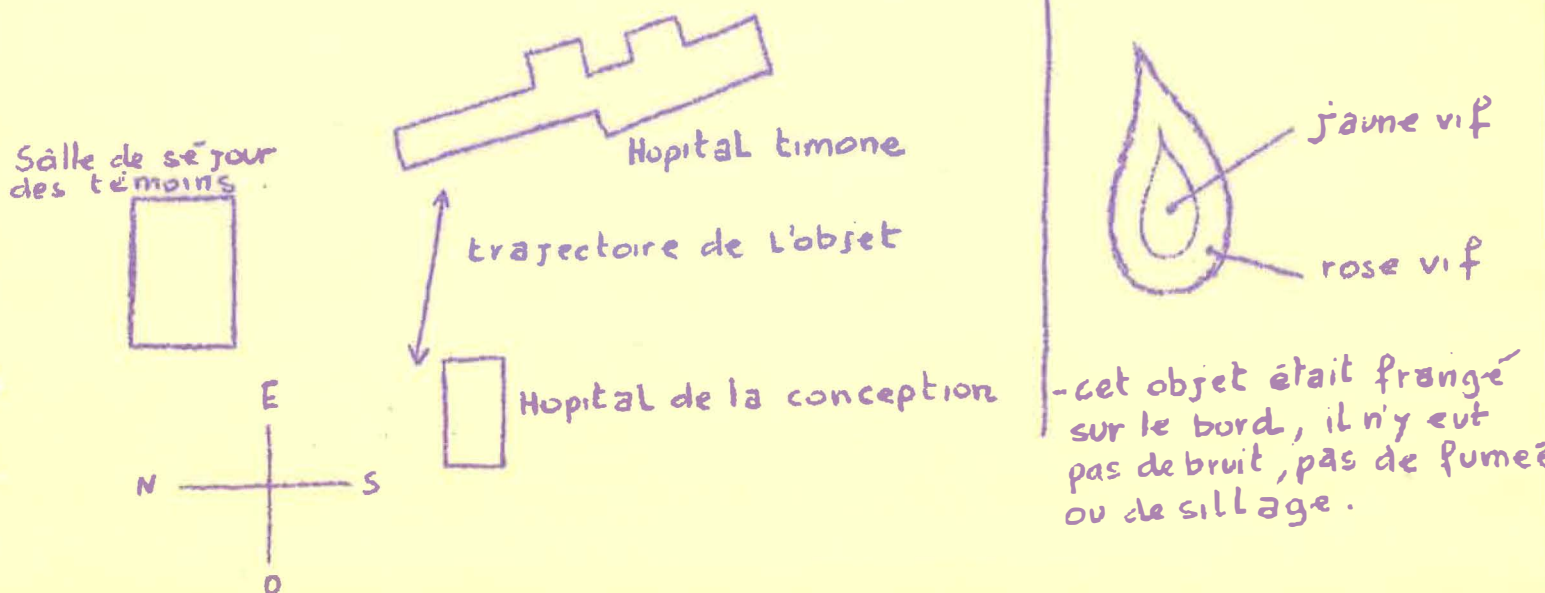 Sâlle de séjour
des témoins
Hopital timone
trajectoire de l'objet
Hopital de la conception
E
N
S
O
jaune vif
rose vif
-cet objet était frangé
sur le bord, il n'y eut
pas de bruit, pas de fumeé
ou de sillage.